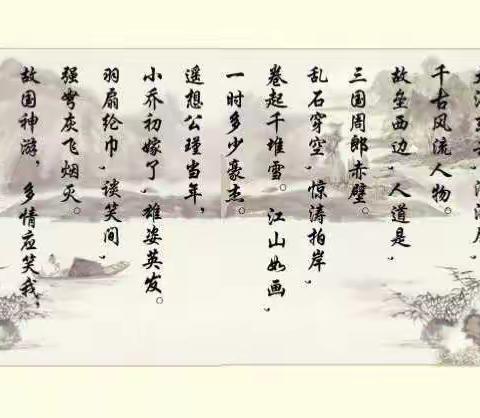 千古风流人物。
故垒西边，人道是，
三国周郎赤壁。
乱石穿空，惊涛拍岸，
卷起千堆雪。江山如画，
一时多少豪杰。
遥想公瑾当年，
小乔初嫁了，雄姿英发。
羽扇纶巾，谈笑间，
强弩灰飞烟灭。
故国神游，多情应笑我，